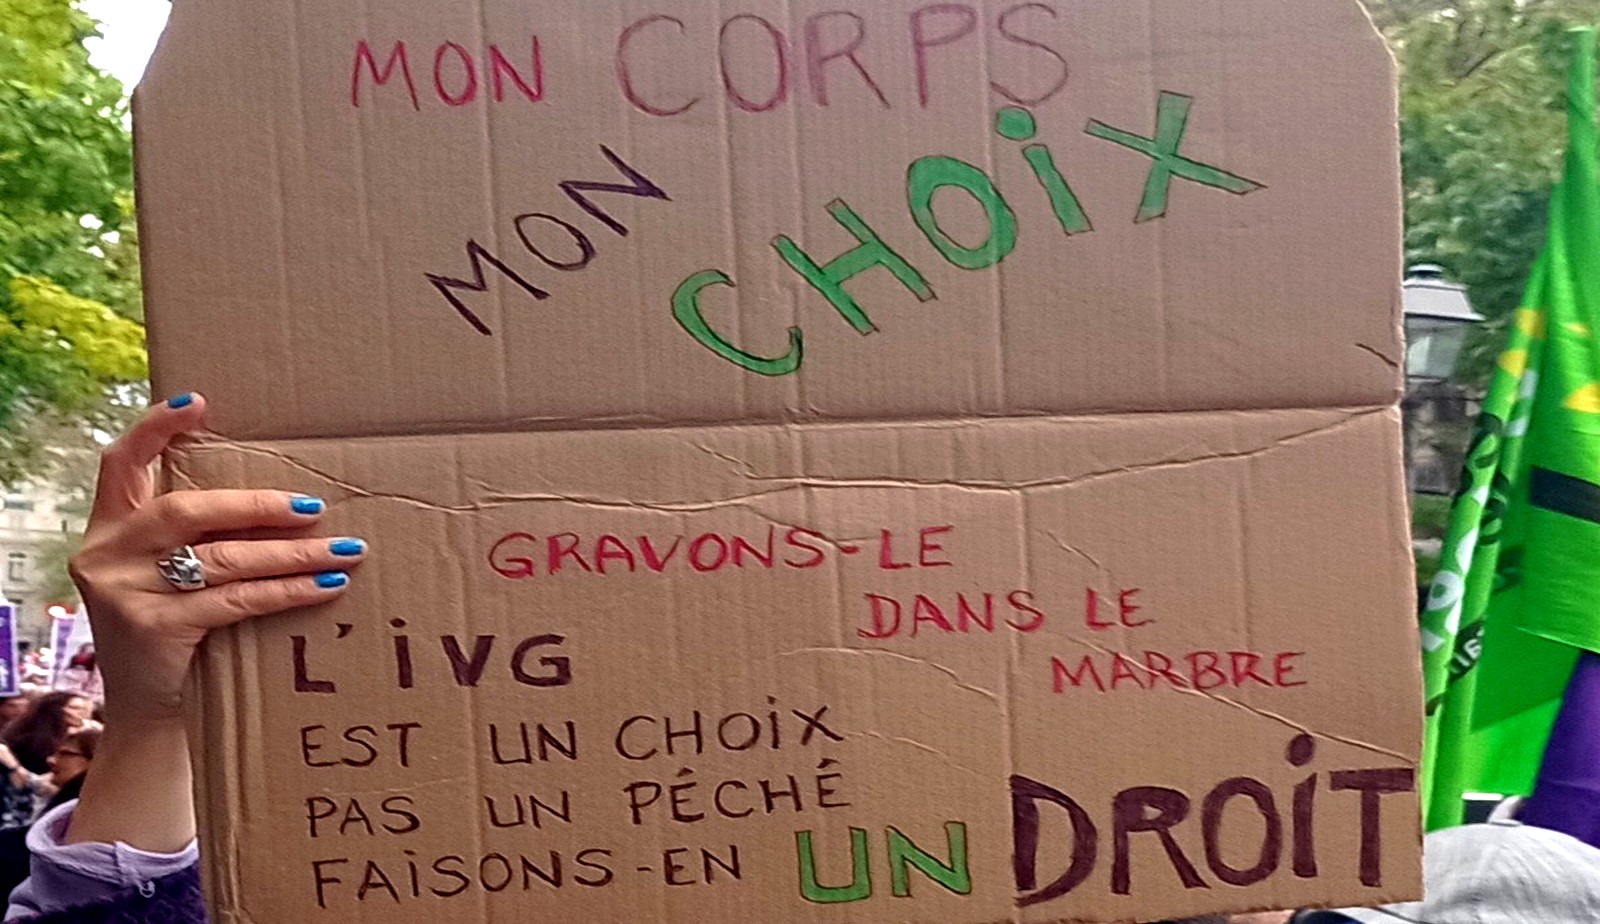 MON CORPS
MON CHOiX
GRAVONS-LE
DANS LE
MARBRE
L'iVG
EST UN CHOiX
PAS UN PÉCHÉ
FAiSONS-EN UN DROiT